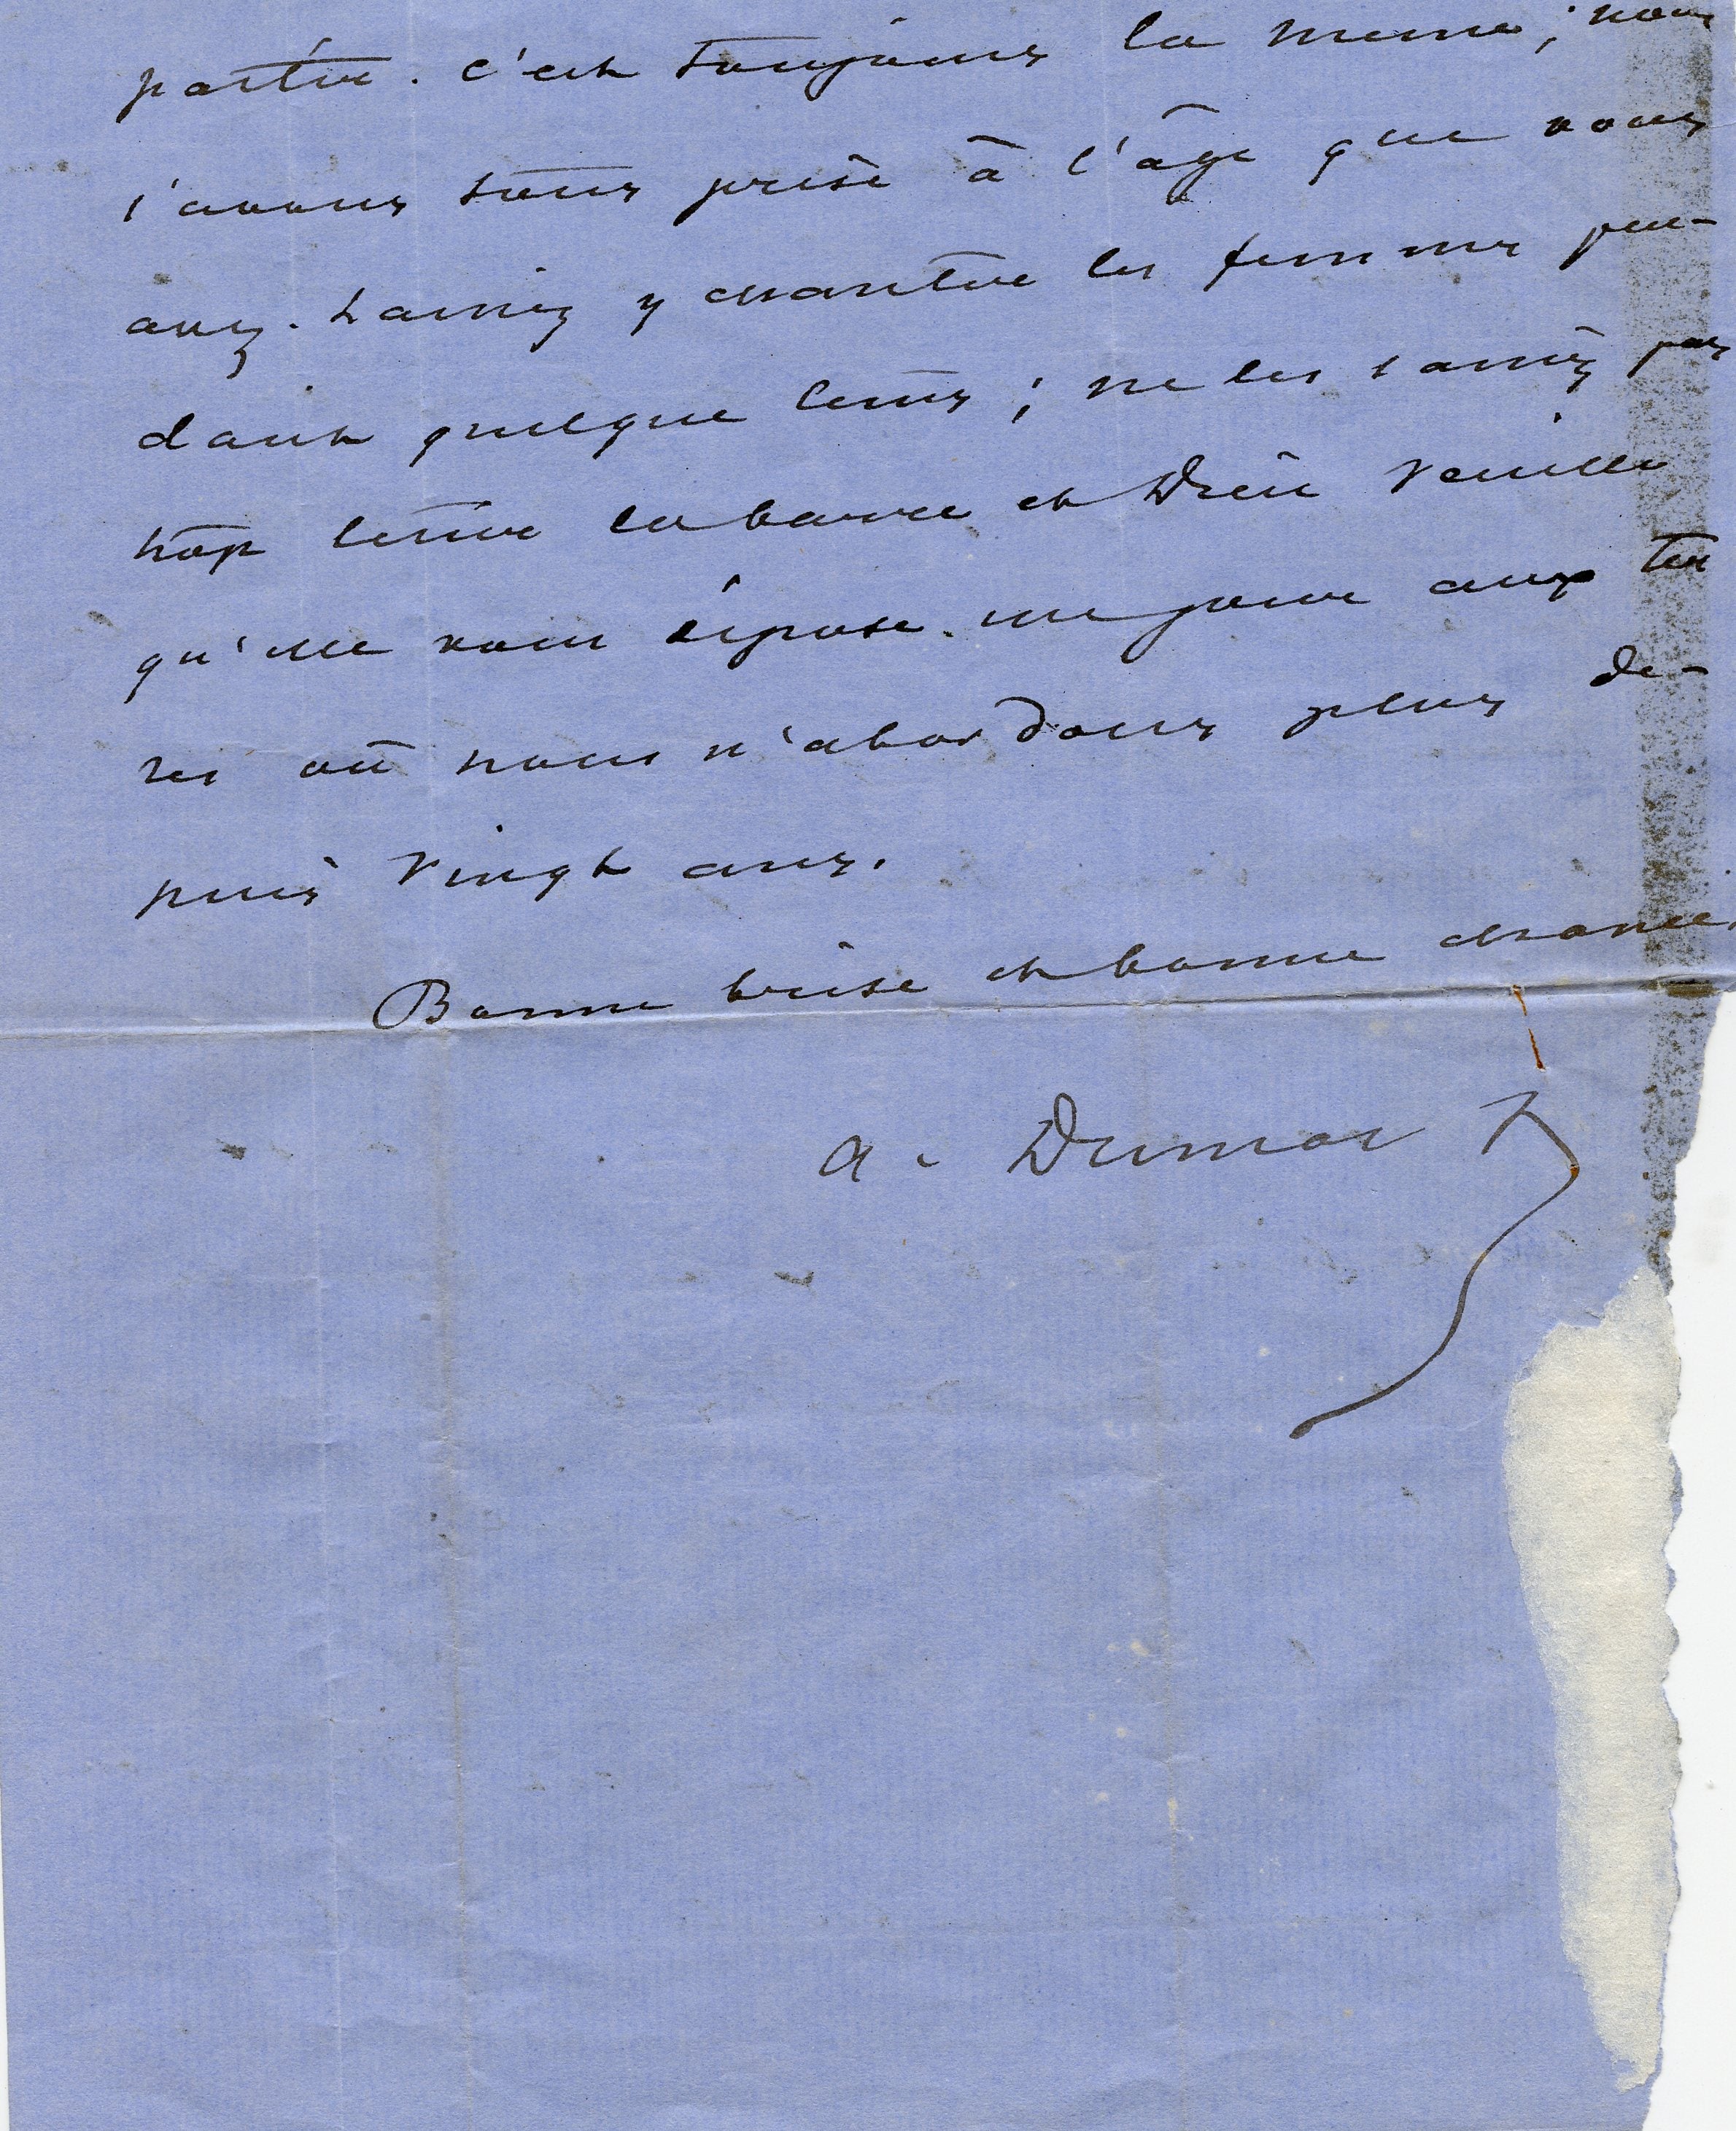 partir. c'est toujours la même ; nous
l'avons tous prise à l'âge que vous
avez. Laissez y chanter les femmes pen-
dant quelque tems ; ne les laissez pas
trop tenir la barre et Dieu veuille
qu'elle vous dépose un jour aux ter
res où nous n'abordons plus de-
puis vingt ans.
Bonne brise et bonne chance.
A. Dumas